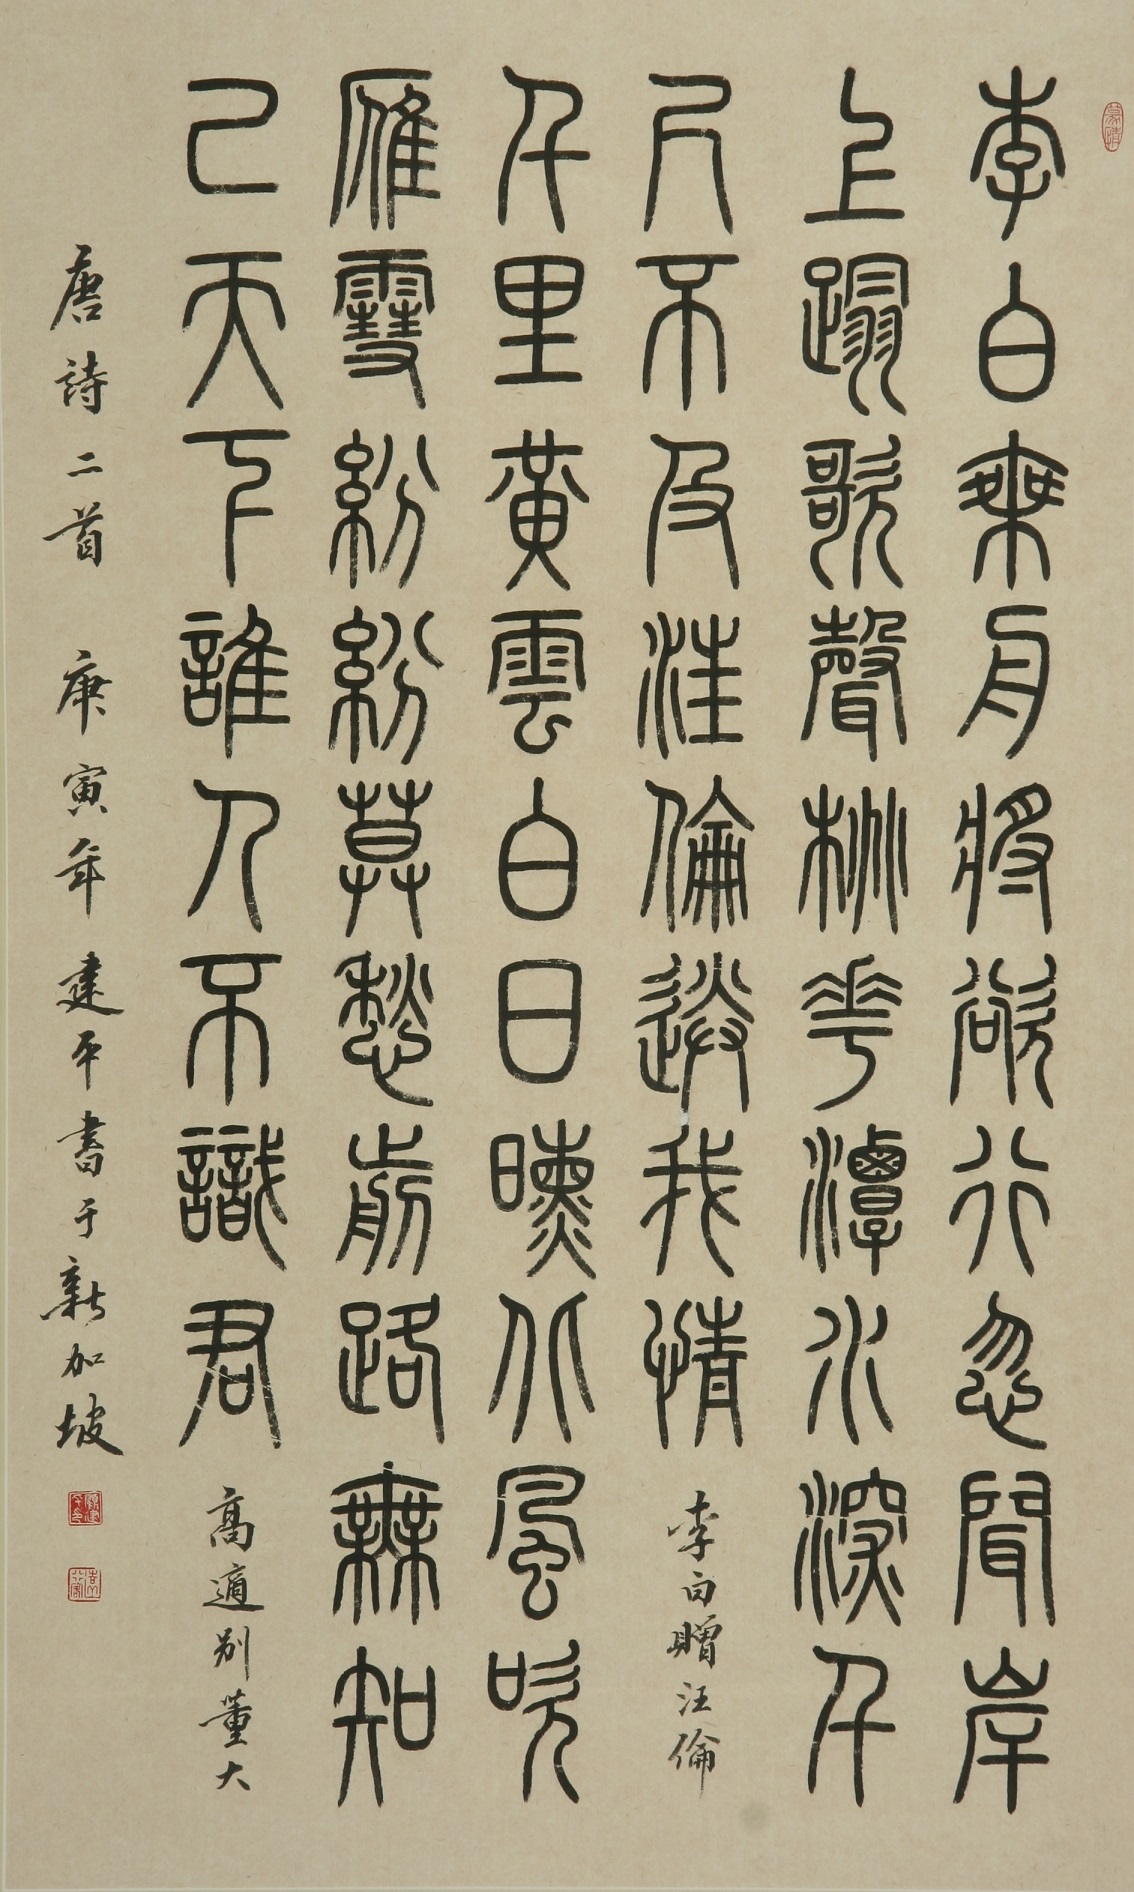 李白乘舟將欲行忽聞岸
上蹋歌聲桃花潭水深千
尺不及汪倫送我情
李白贈汪倫
千里黃雲白日曛北風吹
雁雪紛紛莫愁前路無知
己天下誰人不識君
高適別董大
唐詩二首 庚寅年 建平書于新加坡